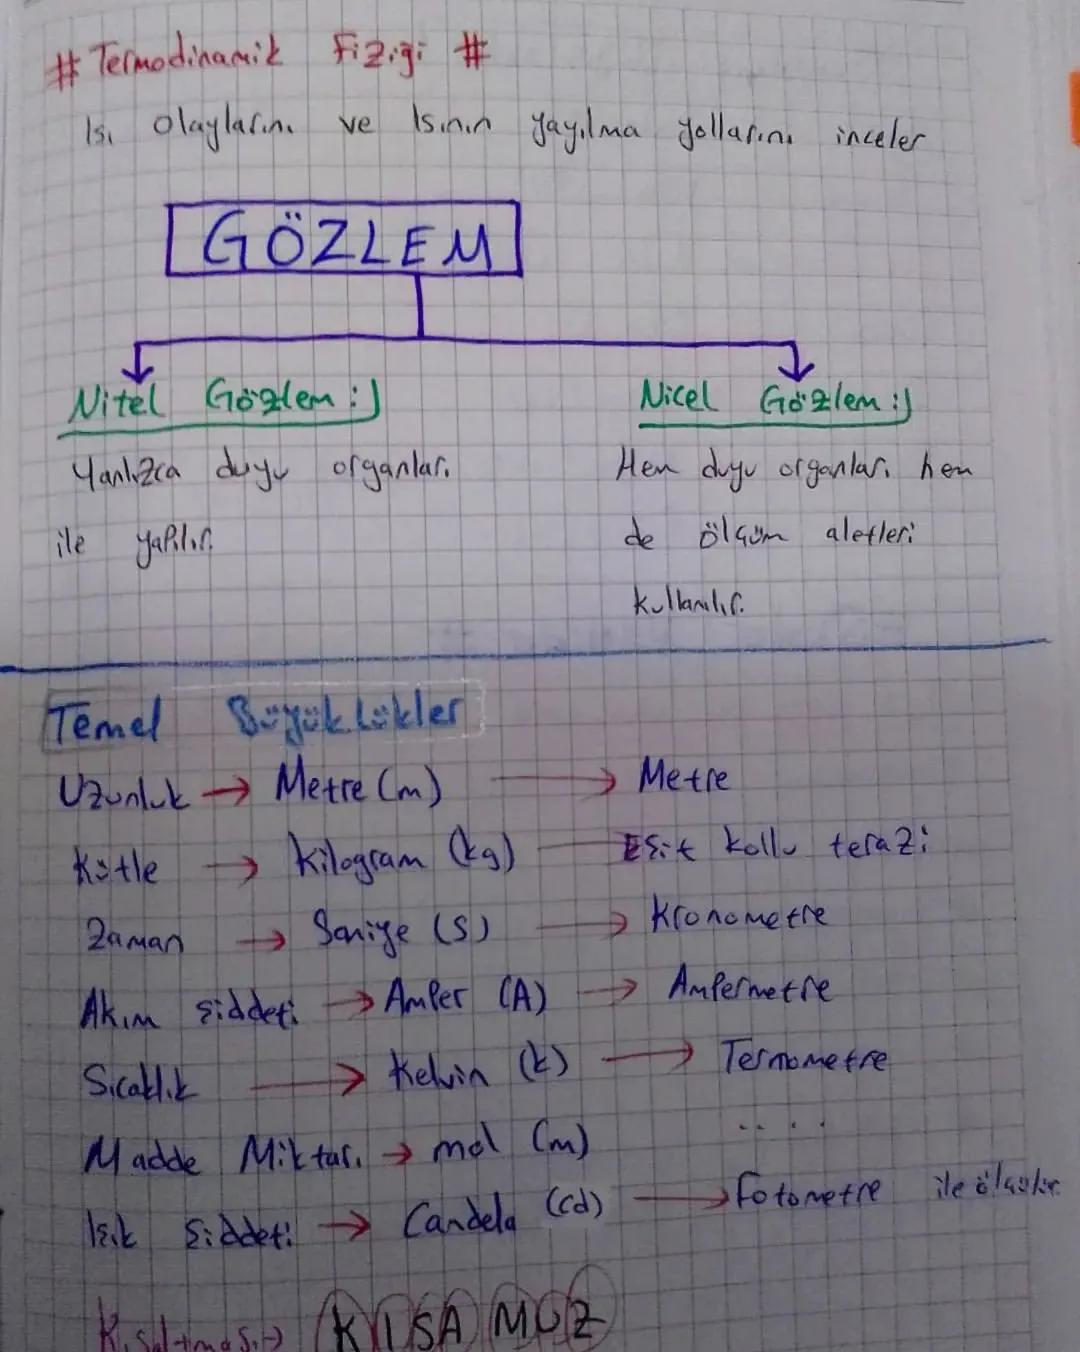 # Termodinamik Fiziği #
Isı olaylarını ve Isının yayılma yollarını inceler
GÖZLEM
Nitel Gözlem :)
Yanlızca duyu organları
ile yapılır.
Nicel Gözlem :)
Hem duyu organları hem
de ölçüm aletleri
kullanılır.
Temel Büyüklükler
Uzunluk → Metre (m) → Metre
Kütle → Kilogram (kg) — Eşit kollu terazi
Zaman → Saniye (s) → Kronometre
Akım şiddeti → Amper (A) → Ampermetre
Sıcaklık → Kelvin (k) → Termometre
Madde Miktarı → mol (m) ....
Işık Şiddeti → Candela (cd) → Fotometre ile ölçülür.
Kısaltması → KISA MUZ